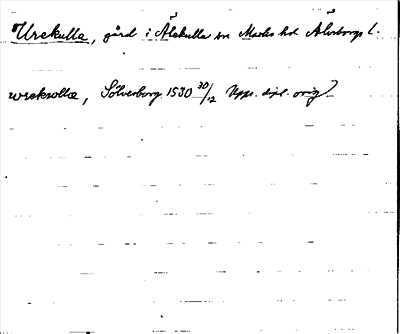 Urekulla, gård i Älekulla sn Marks hd Älvsborgs l.
wrekwlla, Sölvesborg 1530 30/12 Upps. dipl. orig